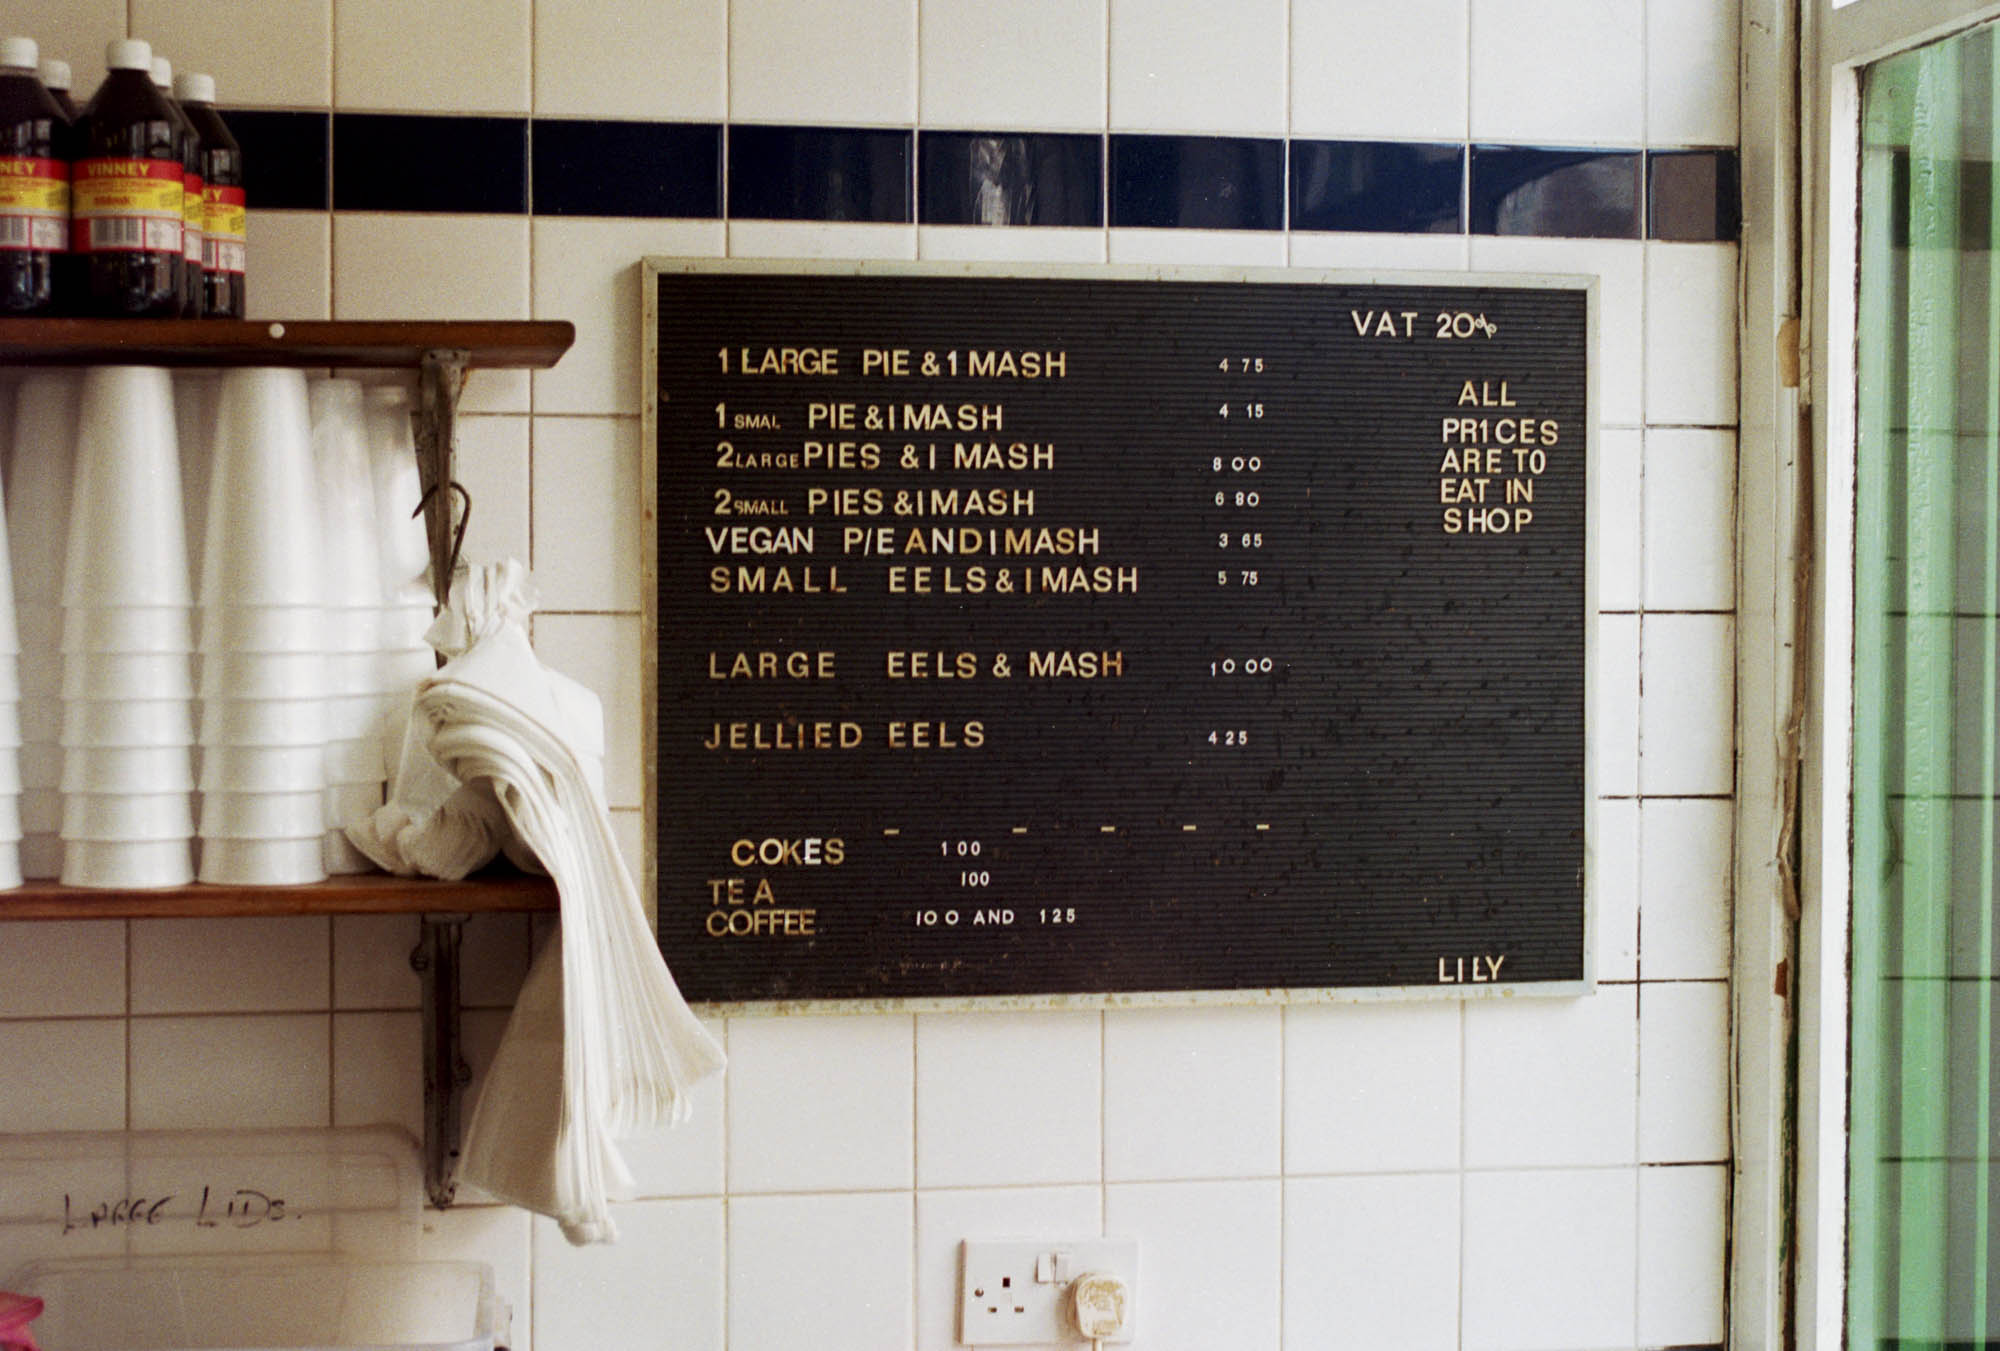 VAT 20%
1 LARGE PIE & 1 MASH 4 75
1 SMAL PIE & I MASH 4 15
2 LARGE PIES & I MASH 8 00
2 SMALL PIES & I MASH 6 80
VEGAN P/E AND I MASH 3 65
SMALL EELS & I MASH 5 75
LARGE EELS & MASH 10 00
JELLIED EELS 4 25
- - - - -
COKES 1 00
TEA 100
COFFEE 100 AND 125
ALL
PR1CES
ARE TO
EAT IN
SHOP
LILY
VINNEY
NEY
EY
LARGE LIDS.